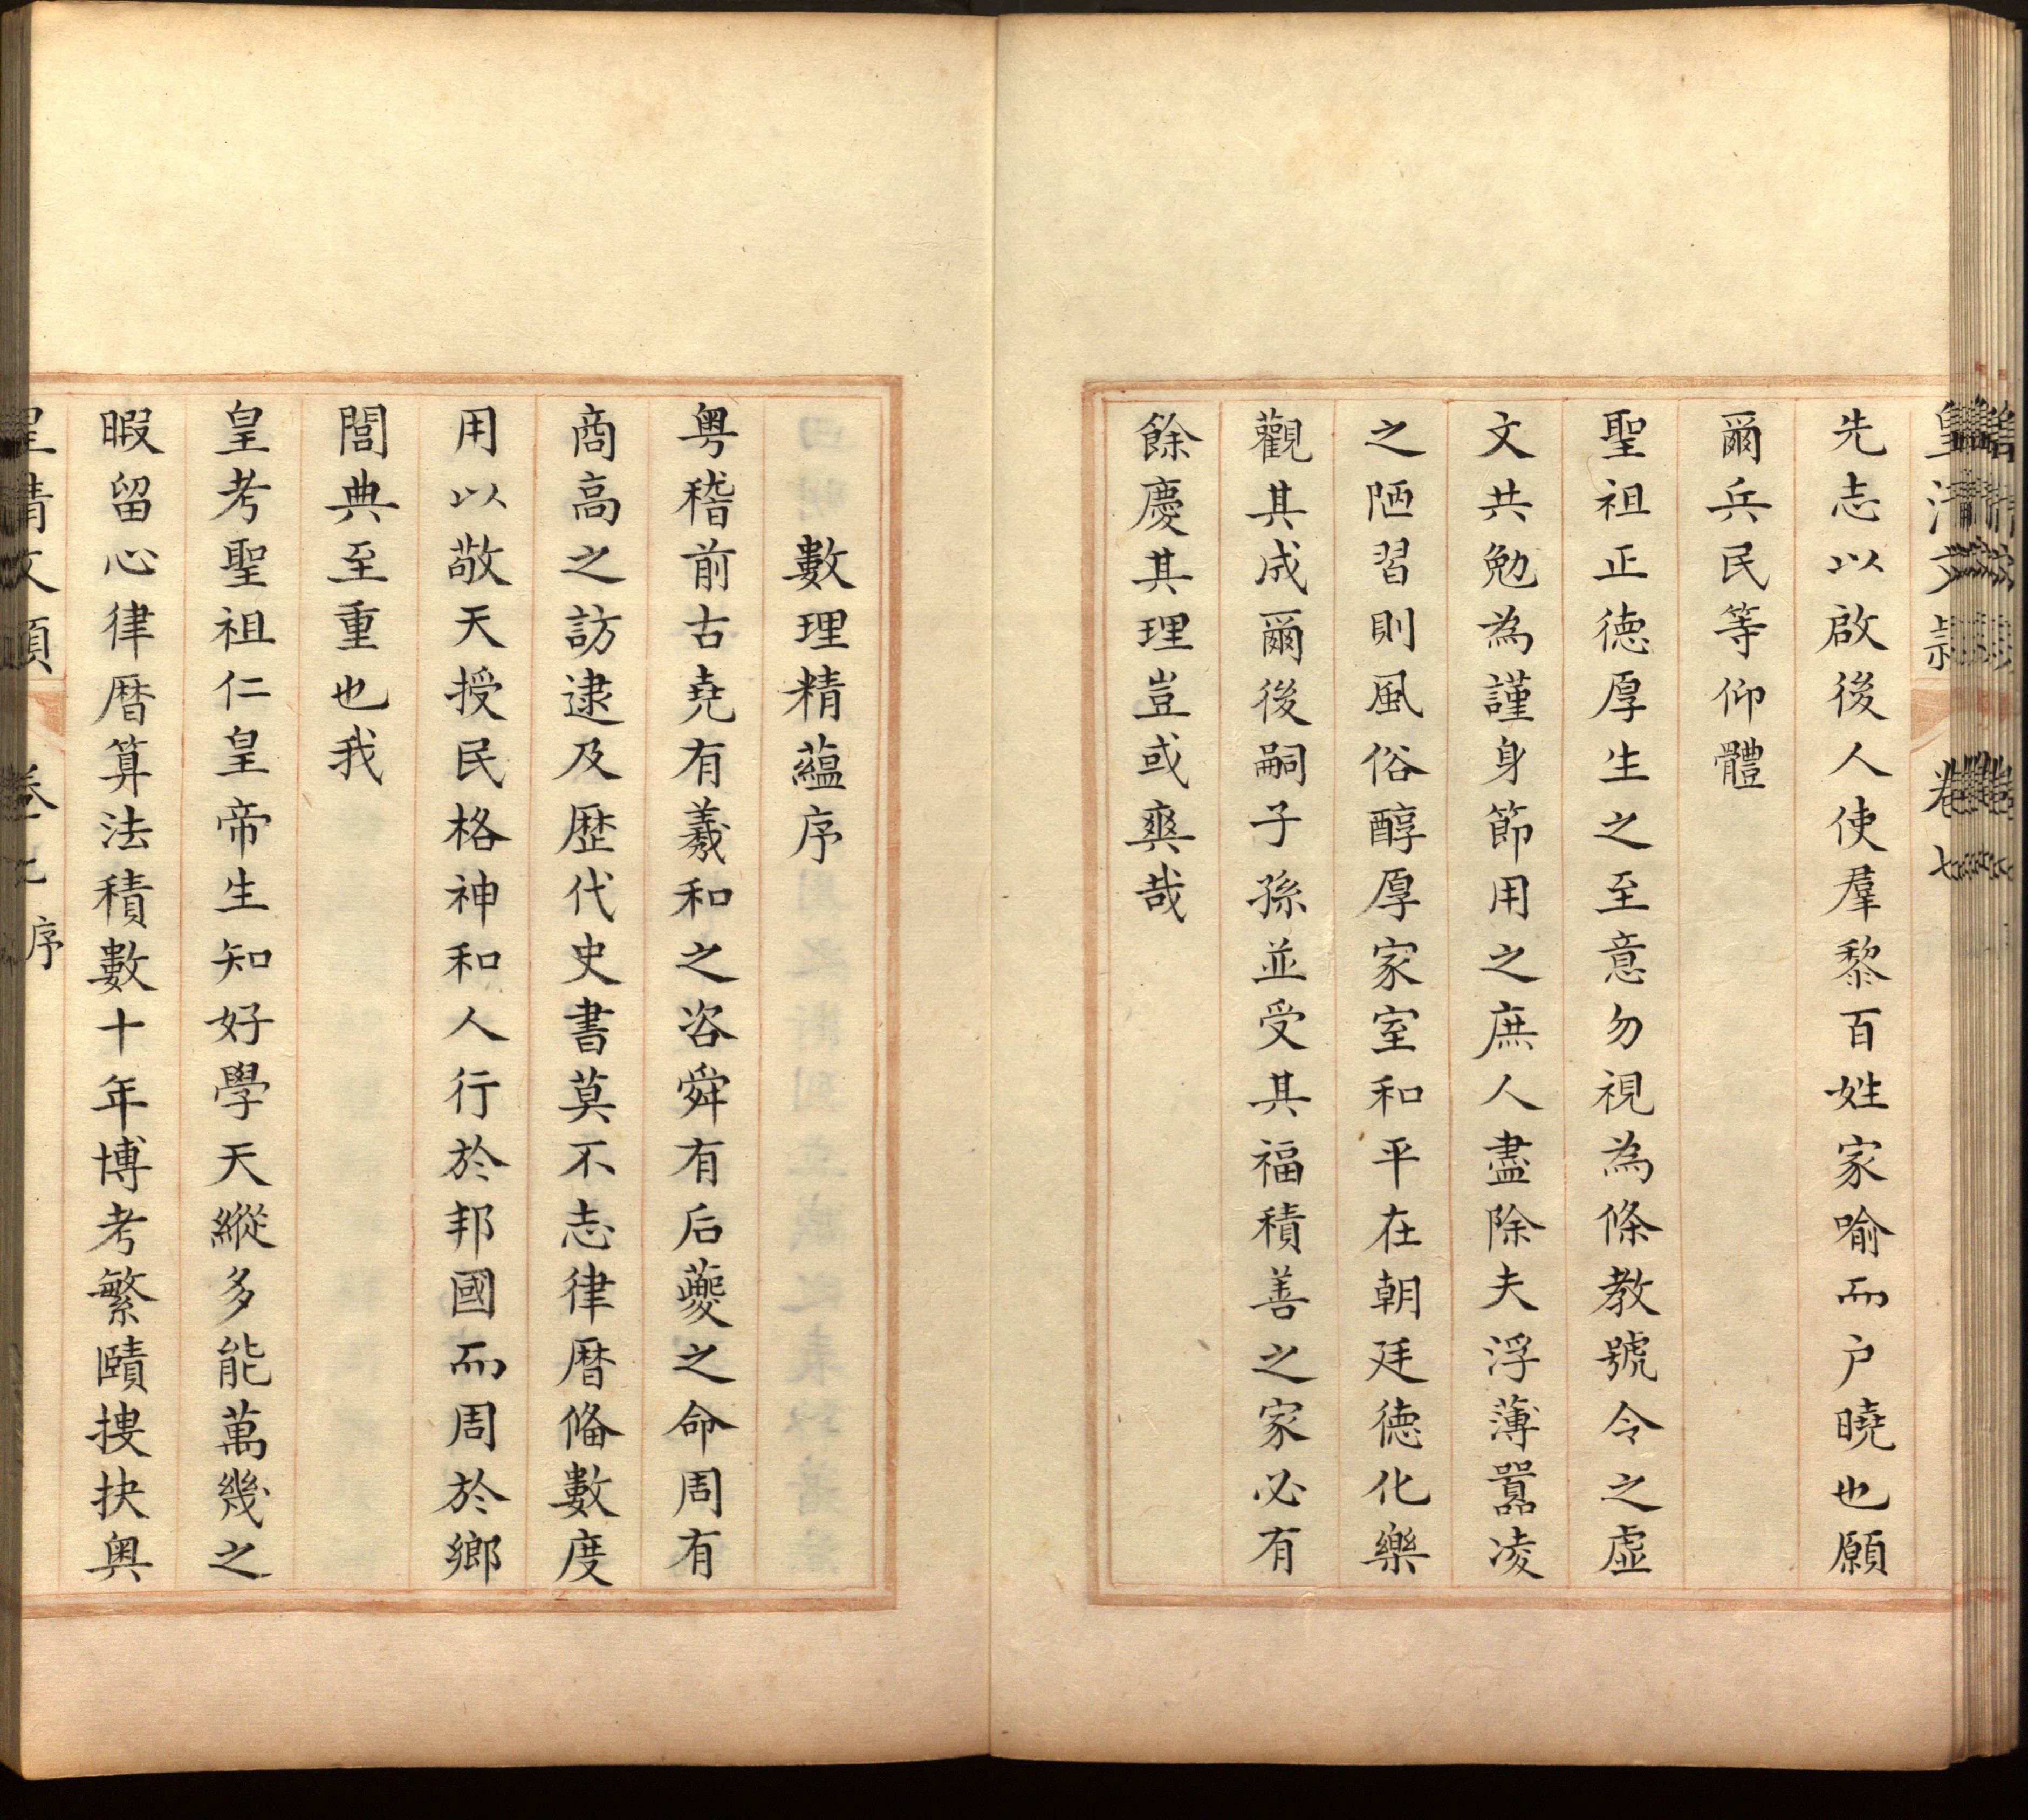 皇清文穎 卷七
先志以啟後人使羣黎百姓家喻而户曉也願
爾兵民等仰體
聖祖正德厚生之至意勿視為條教號令之虛
文共勉為謹身節用之庶人盡除夫浮薄囂凌
之陋習則風俗醇厚家室和平在朝廷德化樂
觀其成爾後嗣子孫並受其福積善之家必有
餘慶其理豈或爽哉
數理精蘊序
粤稽前古堯有羲和之咨舜有后夔之命周有
商高之訪逮及歷代史書莫不志律暦俻數度
用以敬天授民格神和人行於邦國而周於鄉
閭典至重也我
皇考聖祖仁皇帝生知好學天縱多能萬幾之
暇留心律暦算法積數十年博考繁賾摟抉奥
皇清文穎 卷七 序